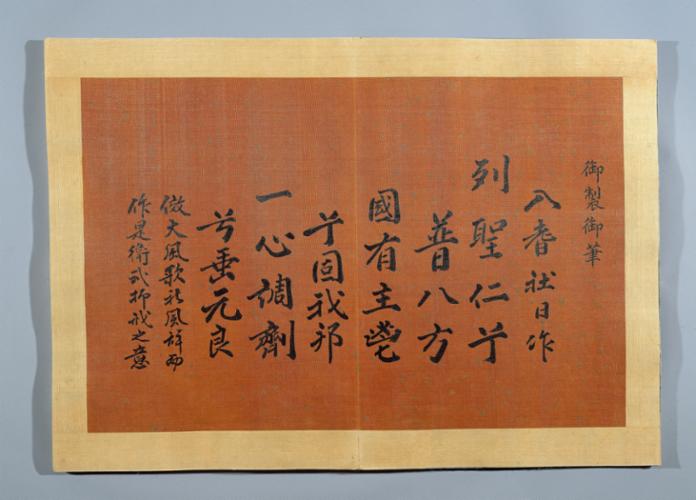 御製御筆
入耆社日作
列聖仁兮
普八方
國有主鬯
兮固我邦
一心調劑
兮垂元良
倣大風歌秋風辞而
作是衛武抑戒之意